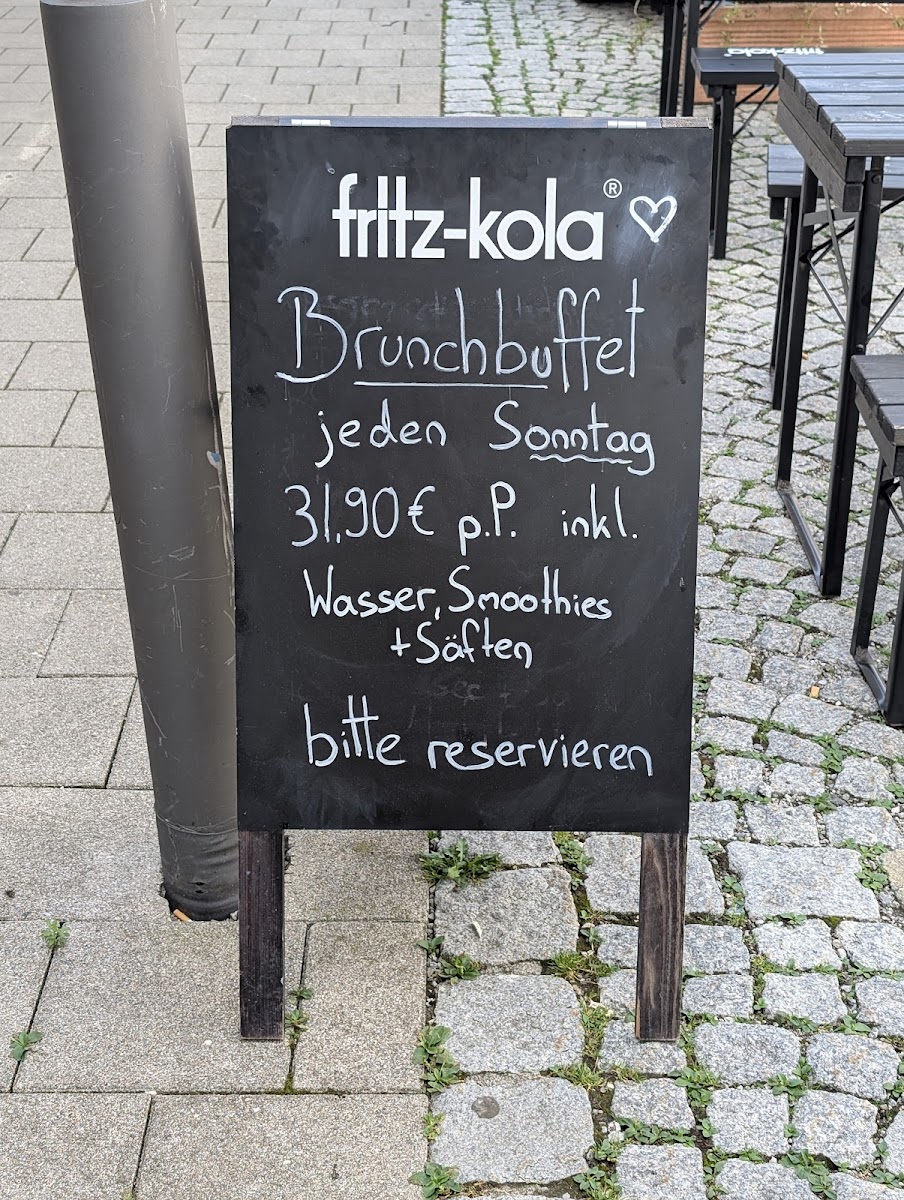 fritz-kola
fritz-kola® ♡
Brunchbuffet
jeden Sonntag
31,90€ p.P. inkl.
Wasser, Smoothies
+ Säften
bitte reservieren